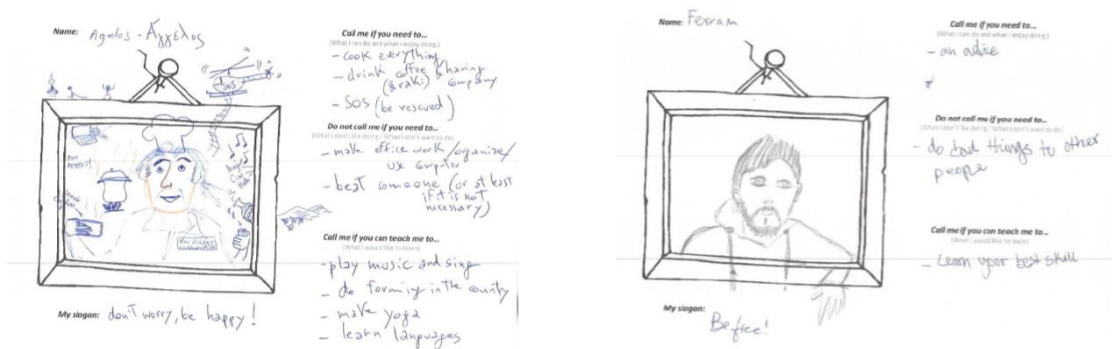 Name: Agelos - Άγγελος
Call me if you need to...
(What I can do and what I enjoy doing)
- cook everything
- drink coffee sharing
(& raki) company
- SOS (be rescued)
Do not call me if you need to...
(What I don't like doing / What I don't want to do)
- make office work / organize /
use computer
- beat someone (or at least
if it is not
necessary)
Call me if you can teach me to...
(What I would like to learn)
- play music and sing
- do farming in the county
- make yoga
- learn languages
SOS
My slogan: don't worry, be happy!
Name: Ferran
Call me if you need to...
(What I can do and what I enjoy doing)
- an advice
Do not call me if you need to...
(What I don't like doing / What I don't want to do)
- do bad things to other
people
Call me if you can teach me to...
(What I would like to learn)
- Learn your best skill
My slogan:
Be free!